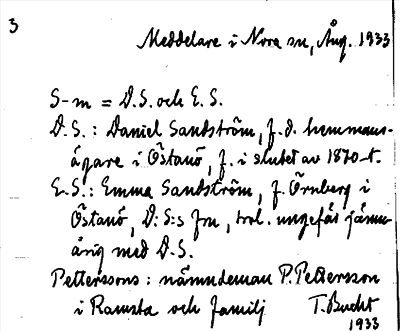 3
Meddelare i Nora sn, Ång. 1933
S-m = D.S. och E.S.
D.S.: Daniel Sandström, f.d. hemmans-
ägare i Östanö, f. i slutet av 1870-t.
E.S.: Emma Sandström, f. Örnberg i
Östanö, D:S:s fru, trol. ungefär jämn-
årig med D.S.
Petterssons: nämndeman P. Pettersson
i Ramsta och familj T. Bucht
1933